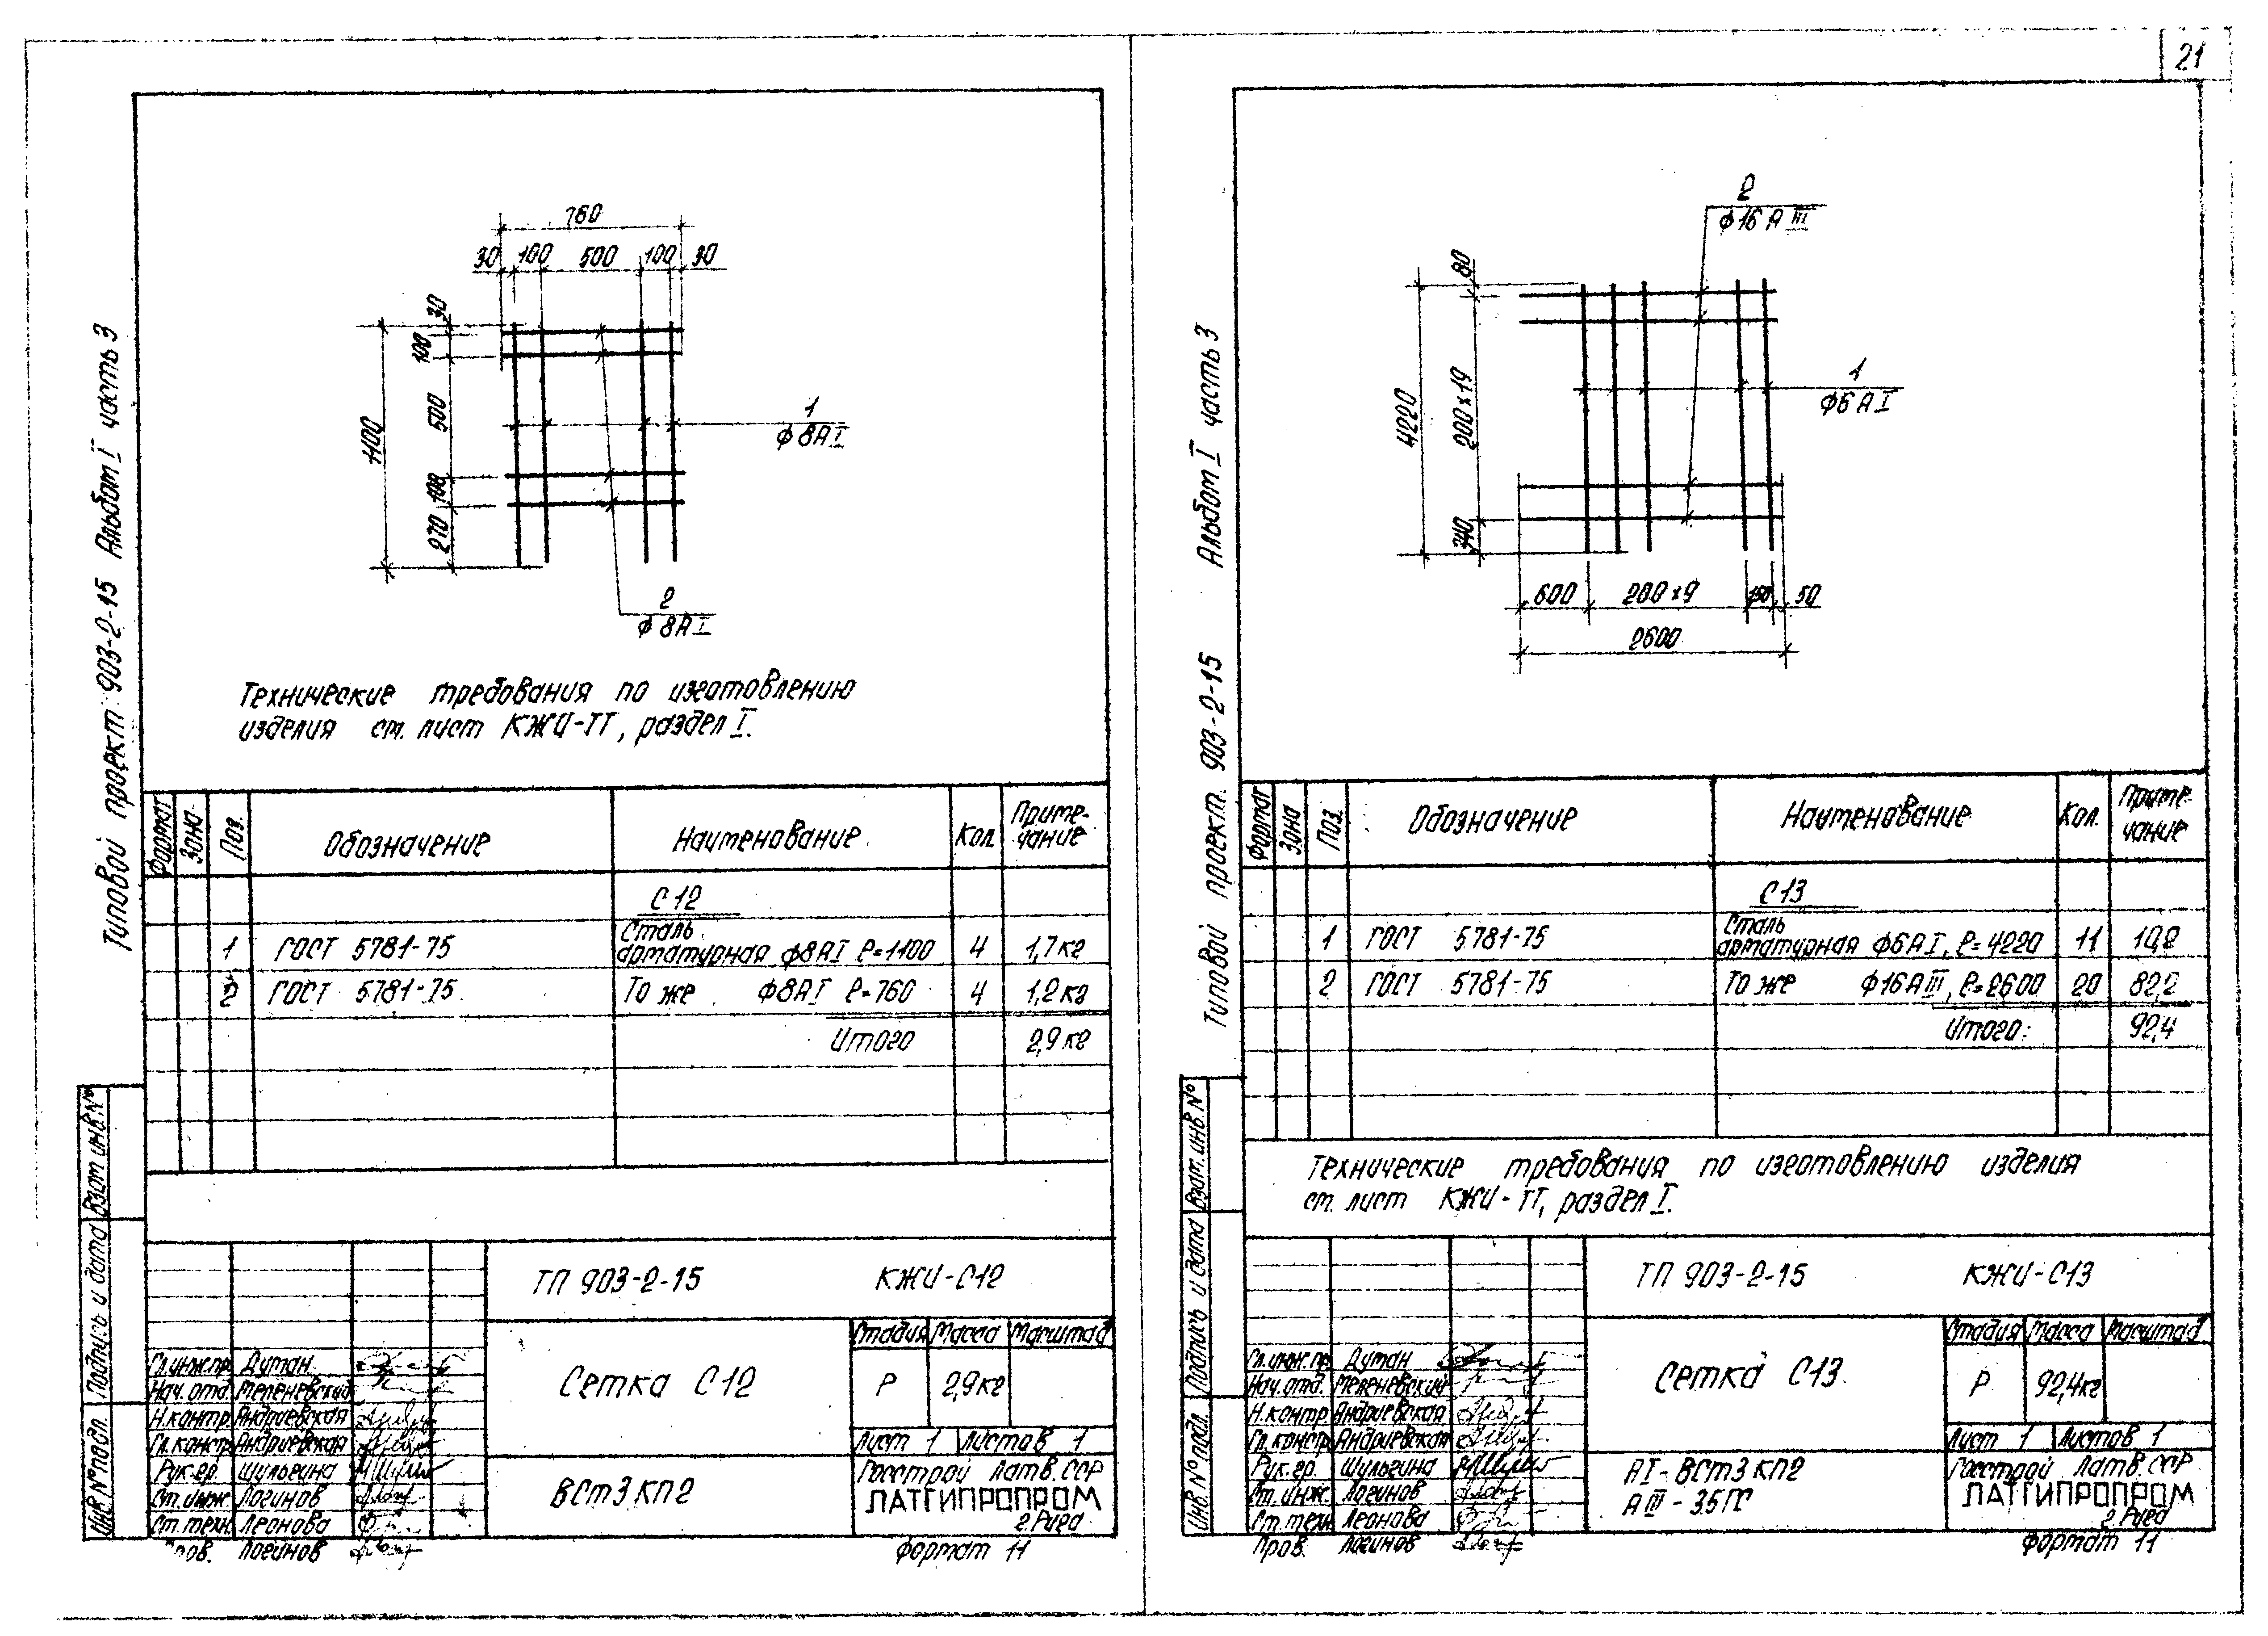 21
Типовой проект 903-2-15 Альбом I часть 3
760
30 100 500 100 30
30
100
500
100
270
1100
1
ф8АI
2
ф8АI
Технические требования по изготовлению
изделия см. лист КЖИ-ТТ, раздел I.
Формат Зона Поз. Обозначение Наименование Кол. Приме-
чание
С12
Сталь
1 ГОСТ 5781-75 арматурная ф8АI ℓ=1100 4 1,7кг
2 ГОСТ 5781-75 То же ф8АI ℓ=760 4 1,2кг
Итого 2,9кг
Инв.№ подл. Подпись и дата Взам.инв.№
ТП 903-2-15 КЖИ-С12
Стадия Масса Масштаб
Сетка С12 Р 2,9кг
Лист 1 Листов 1
ВСт3кп2
Госстрой Латв.ССР
ЛАТГИПРОПРОМ
г.Рига
Гл.инж.пр. Думан
Нач.отд. Меленевский
Н.контр. Андриевская
Гл.констр. Андриевская
Рук.гр. Шульгина
Ст.инж. Логинов
Ст.техн. Леонова
Пров. Логинов
Формат 11
Типовой проект 903-2-15 Альбом I часть 3
2
ф16АIII
80
200х19
340
4220
1
ф6АI
600 200х9 150 50
2600
Формат Зона Поз. Обозначение Наименование Кол. Приме-
чание
С13
Сталь
1 ГОСТ 5781-75 арматурная ф6АI, ℓ=4220 11 10,2
2 ГОСТ 5781-75 То же ф16АIII, ℓ=2600 20 82,2
Итого: 92,4
Технические требования по изготовлению изделия
см. лист КЖИ-ТТ, раздел I.
Инв.№ подл. Подпись и дата Взам.инв.№
ТП 903-2-15 КЖИ-С13
Стадия Масса Масштаб
Сетка С13. Р 92,4кг
Лист 1 Листов 1
АI-ВСт3кп2
АIII-35ГС
Госстрой Латв.ССР
ЛАТГИПРОПРОМ
г.Рига
Гл.инж.пр. Думан
Нач.отд. Меленевский
Н.контр. Андриевская
Гл.констр. Андриевская
Рук.гр. Шульгина
Ст.инж. Логинов
Ст.техн. Леонова
Пров. Логинов
Формат 11